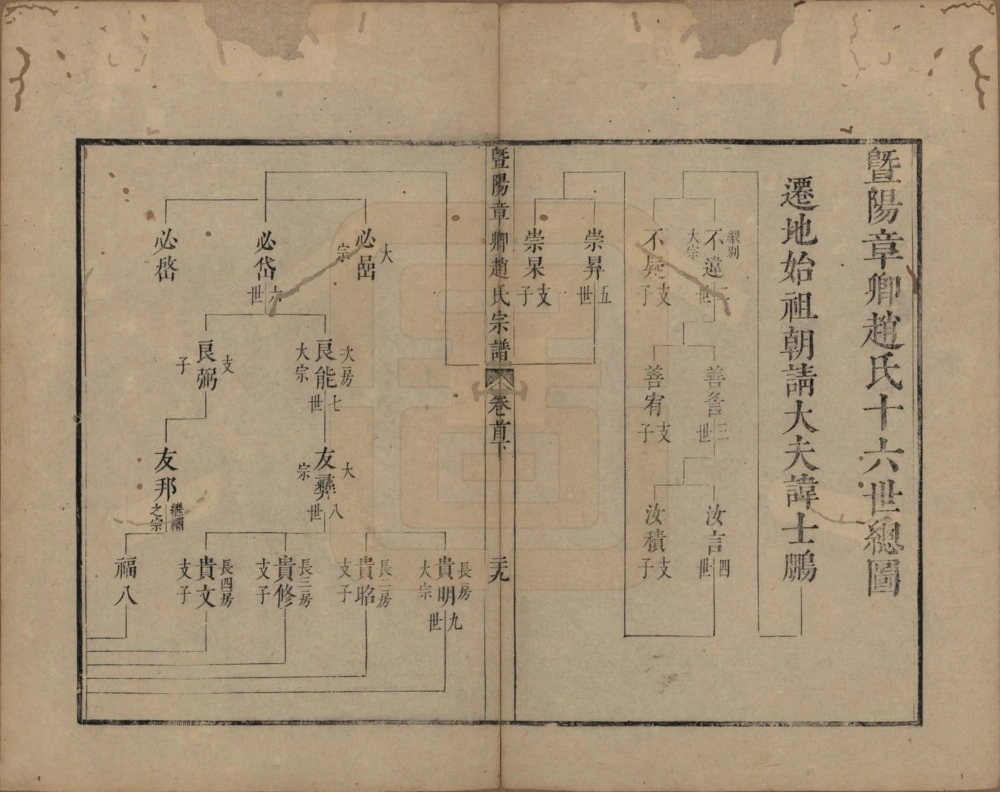 暨陽章卿趙氏十六世總圖
遷地始祖朝請大夫諱士鵬
繼別大宗
不違
二世
不疑
支子
善
三世
善宥
支子
汝言
四世
汝積
支子
崇昇
五世
崇杲
支子
暨陽章卿趙氏宗譜
卷首下
三九
大宗
必嵒
必岱
六世
必啓
次二房大宗
良能
七世
支子
良弼
大宗
友彝
八世
友邦
繼禰之宗
長房大宗
貴明
九世
長二房支子
貴昭
長三房支子
貴修
長四房支子
貴文
福八